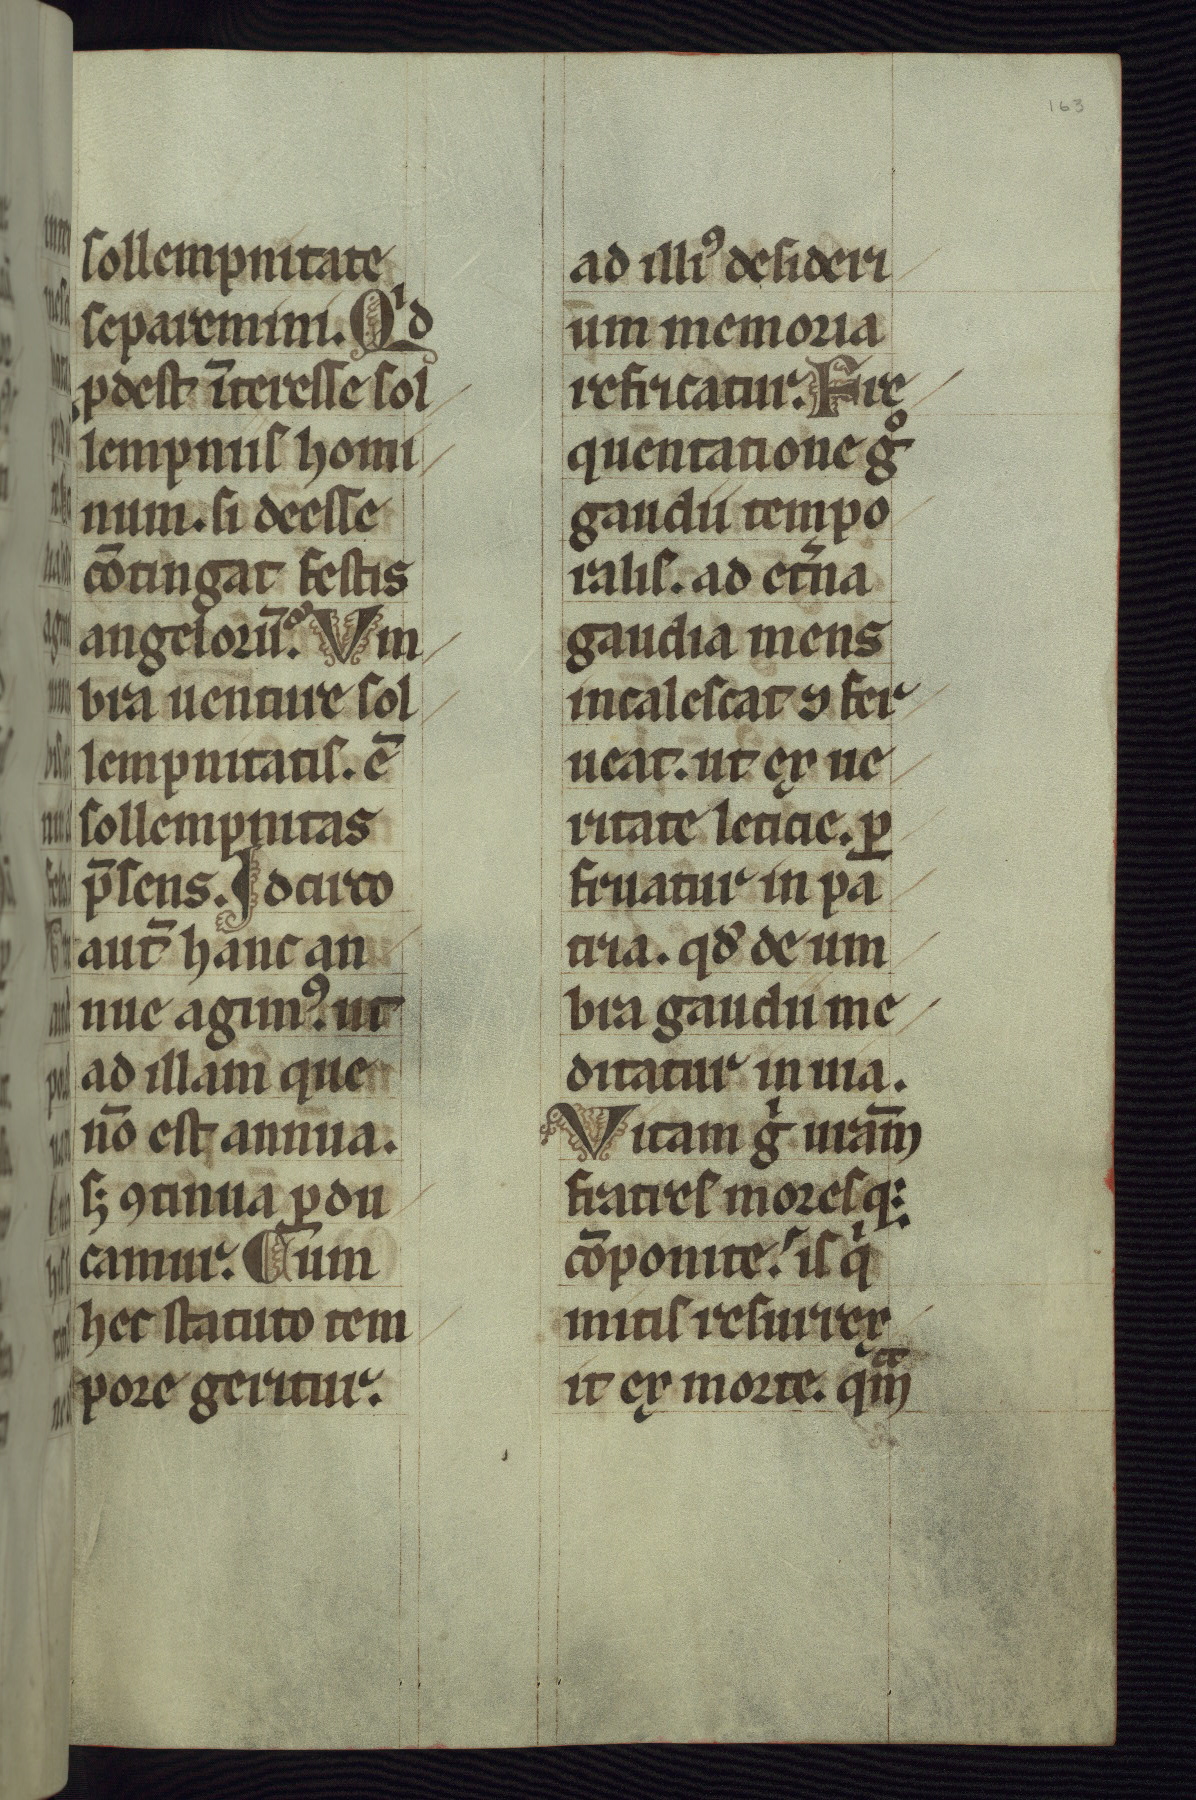 163
sollempnitate
separemini. Qͥd
ꝓdest īteresse sol
lempniis homi
num. si deesse
cōtingat festis
angeloꝛū. Vm
bra uenture sol
lempnitatis. ē
sollempnitas
p̄sens. Idcirco
aut̄ hanc an
nue agimꝰ. ut
ad illam que
nō est annua.
sꝫ ꝯtinua ꝑdu
camur. Cum
hec statuto tem
poꝛe geritur.
ad illiꝰ desideri
um memoꝛia
refricatur. Fre
quentatione gͦ
gaudii tempo
ralis. ad et̄na
gaudia mens
incalescat ⁊ fer
ueat. ut ex ue
ritate leticie. ꝑ
fruatur in pa
tria. qd̓ de um
bra gaudii me
ditatur in uia.
Vitam gͥ ur̄am
fratres moꝛesqꝫ
cōponite. is qͥ
mitis resurrex
it ex moꝛte. qm̄